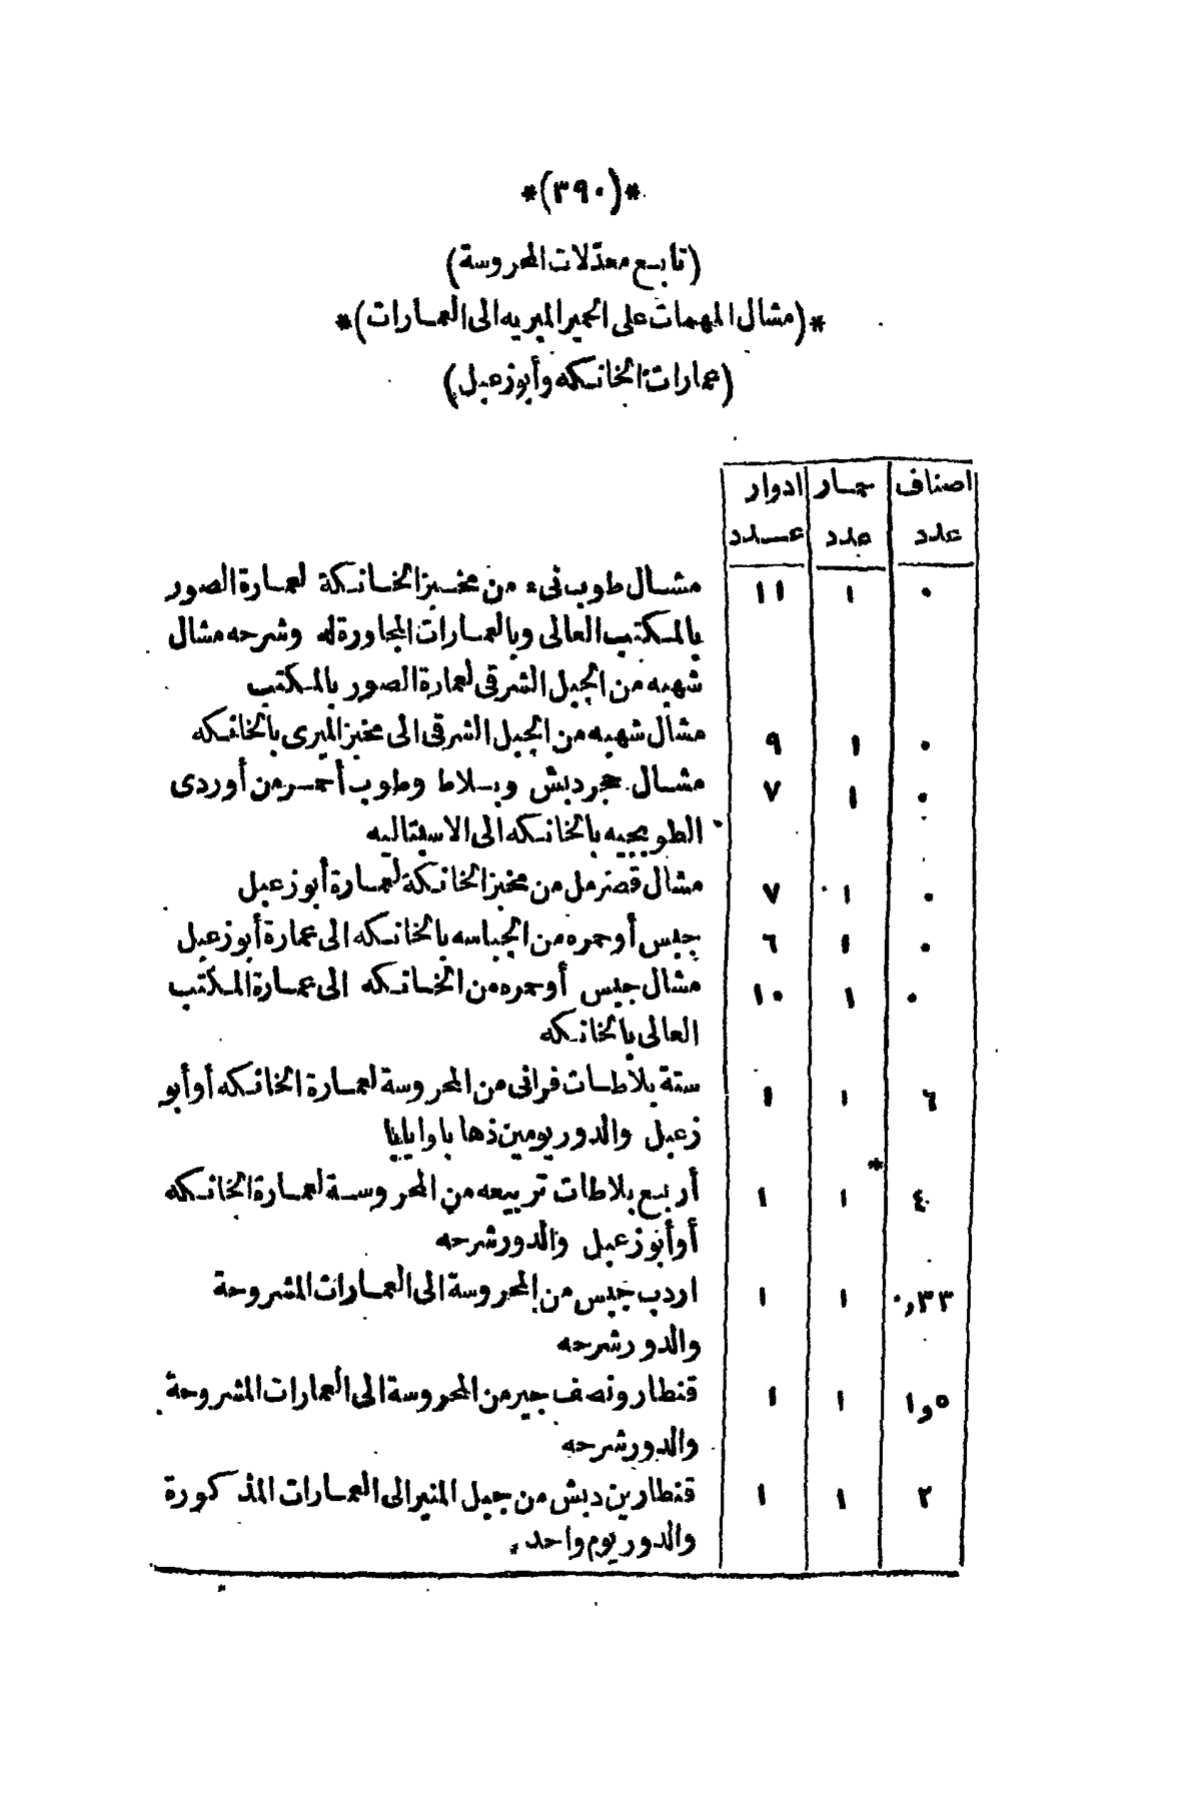 *(٣٩٠)*
(تابع معدّلات المحروسة)
*(مشال المهمات على الحمير الميريه الى العمارات)*
(عمارات الخانكه وأبوزعبل)
اصناف حمار ادوار
عدد عدد عدد
٠ ١ ١١ مشال طوب نىء من مخبز الخانكة لعمارة الصور
بالمكتب العالى وبالعمارات المجاورة له وشرحه مشال
شهبه من الجبل الشرقى لعمارة الصور بالمكتب
٠ ١ ٩ مشال شهبه من الجبل الشرقى الى مخبز الميرى بالخانكه
٠ ١ ٧ مشال حجر دبش وبلاط وطوب أحمر من أوردى
الطوبجيه بالخانكه الى الاسبتاليه
٠ ١ ٧ مشال قصرمل من مخبز الخانكة لعمارة أبوزعبل
٠ ١ ٦ جبس أوحمره من الجباسه بالخانكه الى عمارة أبوزعبل
٠ ١ ١٠ مشال جبس أوحمره من الخانكه الى عمارة المكتب
العالى بالخانكه
٦ ١ ١ ستة بلاطات فرانى من المحروسة لعمارة الخانكه أوأبو
زعبل والدور يومين ذهابا وايابا
*
٤ ١ ١ أربع بلاطات تربيعه من المحروسة لعمارة الخانكه
أوأبوزعبل والدور شرحه
٠,٣٣ ١ ١ اردب جبس من المحروسة الى العمارات المشروحة
والدور شرحه
١و٥ ١ ١ قنطار ونصف جير من المحروسة الى العمارات المشروحة
والدور شرحه
٢ ١ ١ قنطارين دبش من جبل المنير الى العمارات المذكورة
والدور يوم واحد